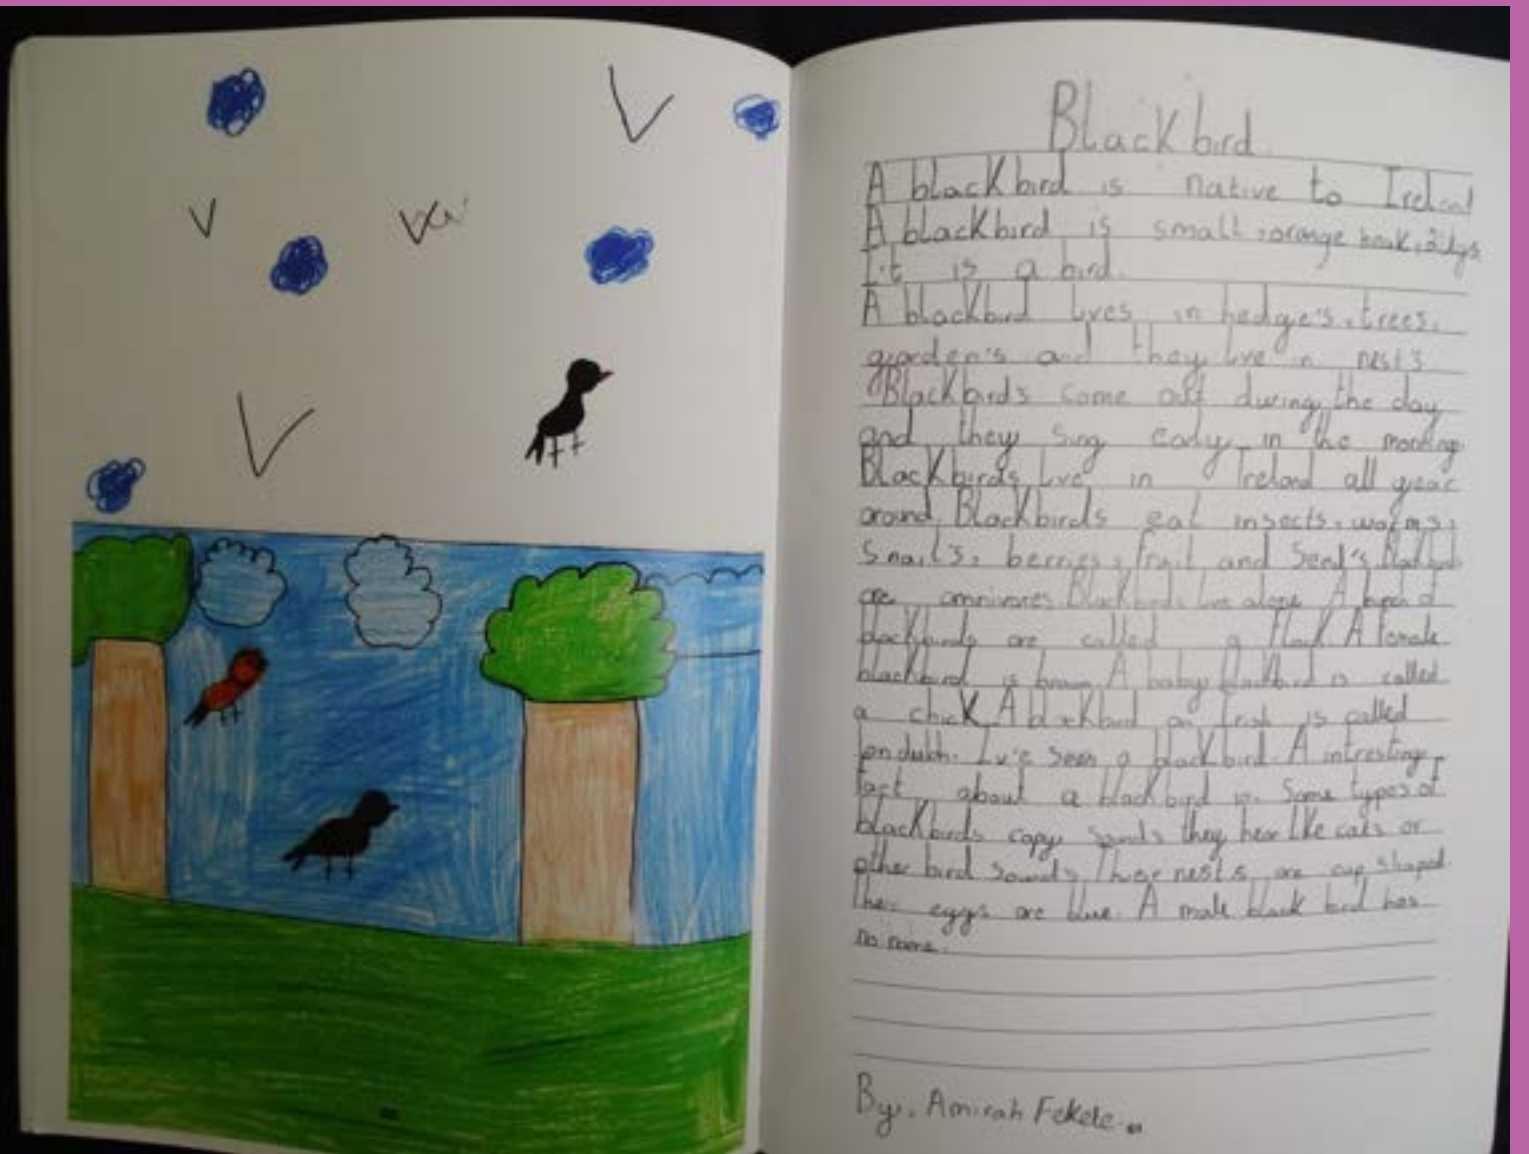 Blackbird.
A blackbird is native to Ireland
A blackbird is small, orange beak, 2 legs.
It is a bird.
A blackbird lives in hedge's, trees,
garden's and they live in nest's.
Blackbirds come out during the day
and they sing early in the morning
Blackbirds live in Ireland all year
around. Blackbirds eat insects, worms,
Snail's, berries, fruit and Seed's. Blackbirds
are omnivores. Blackbirds live alone. A bunch of
blackbirds are called a flock. A female
blackbird is brown. A baby blackbird is called
a chick. A blackbird in Irish is called
lon dubh. Iv'e seen a blackbird. A intresting
fact about a blackbird is. Some types of
blackbirds copy sounds they hear like cats or
other bird sounds. nests are cup shaped.
eggs are blue. A male black bird has
no name.
By. Amirah Fekete.